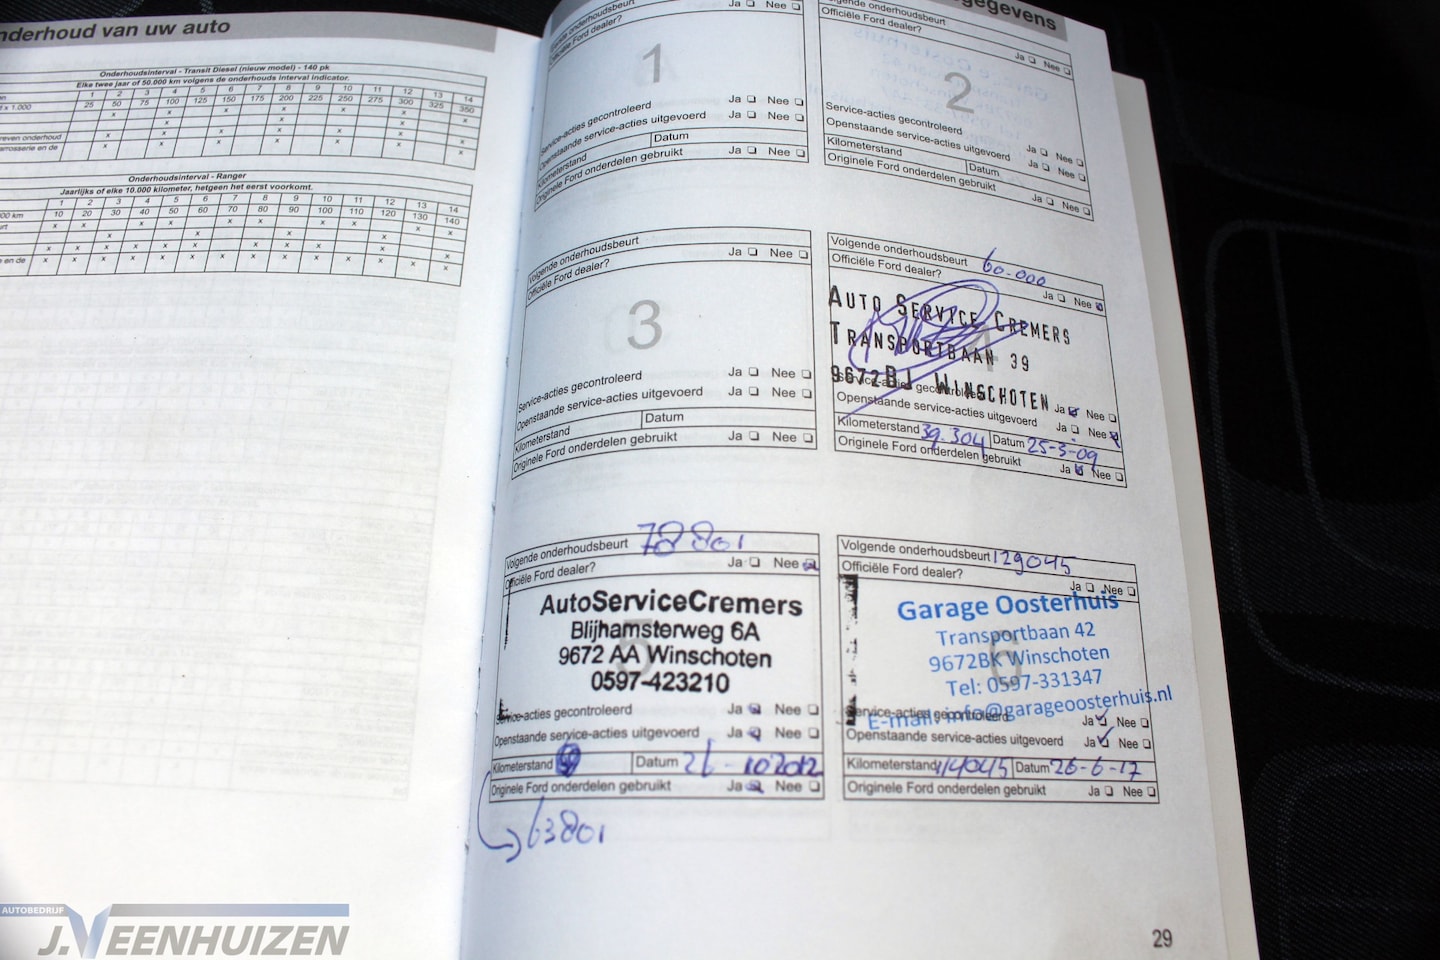 nderhoud van uw auto
Onderhoudsinterval - Transit Diesel (nieuw model) - 140 pk
Elke twee jaar of 50.000 km volgens de onderhouds interval indicator.
1 2 3 4 5 6 7 8 9 10 11 12 13 14
x 1.000 25 50 75 100 125 150 175 200 225 250 275 300 325 350
x x x x x x x
x x x x
reven onderhoud x x x x x x
arrosserie en de x x x x x x x
Onderhoudsinterval - Ranger
Jaarlijks of elke 10.000 kilometer, hetgeen het eerst voorkomt.
1 2 3 4 5 6 7 8 9 10 11 12 13 14
000 km 10 20 30 40 50 60 70 80 90 100 110 120 130 140
en de
AUTOBEDRIJF
J.VEENHUIZEN
gegevens
Ja Nee
Officiële Ford dealer?
1
Service-acties gecontroleerd Ja Nee
Openstaande service-acties uitgevoerd Ja Nee
Kilometerstand Datum
Originele Ford onderdelen gebruikt Ja Nee
Volgende onderhoudsbeurt
Officiële Ford dealer? Ja Nee
2
Service-acties gecontroleerd Ja Nee
Openstaande service-acties uitgevoerd Ja Nee
Kilometerstand Datum
Originele Ford onderdelen gebruikt Ja Nee
Volgende onderhoudsbeurt
Officiële Ford dealer? Ja Nee
3
Service-acties gecontroleerd Ja Nee
Openstaande service-acties uitgevoerd Ja Nee
Kilometerstand Datum
Originele Ford onderdelen gebruikt Ja Nee
Volgende onderhoudsbeurt 60.000
Officiële Ford dealer? Ja Nee
4
AUTO SERVICE CREMERS
TRANSPORTBAAN 39
9672BJ WINSCHOTEN
Service-acties gecontroleerd Ja Nee
Openstaande service-acties uitgevoerd Ja Nee
Kilometerstand 39.304 Datum 25-3-09
Originele Ford onderdelen gebruikt Ja Nee
Volgende onderhoudsbeurt 78801
Officiële Ford dealer? Ja Nee
5
AutoServiceCremers
Blijhamsterweg 6A
9672 AA Winschoten
0597-423210
Service-acties gecontroleerd Ja Nee
Openstaande service-acties uitgevoerd Ja Nee
Kilometerstand Datum 26-10 2012
Originele Ford onderdelen gebruikt Ja Nee
63801
Volgende onderhoudsbeurt 129045
Officiële Ford dealer? Ja Nee
6
Garage Oosterhuis
Transportbaan 42
9672BK Winschoten
Tel: 0597-331347
E-mail: info@garageoosterhuis.nl
Service-acties gecontroleerd Ja Nee
Openstaande service-acties uitgevoerd Ja Nee
Kilometerstand 114045 Datum 26-6-17
Originele Ford onderdelen gebruikt Ja Nee
29